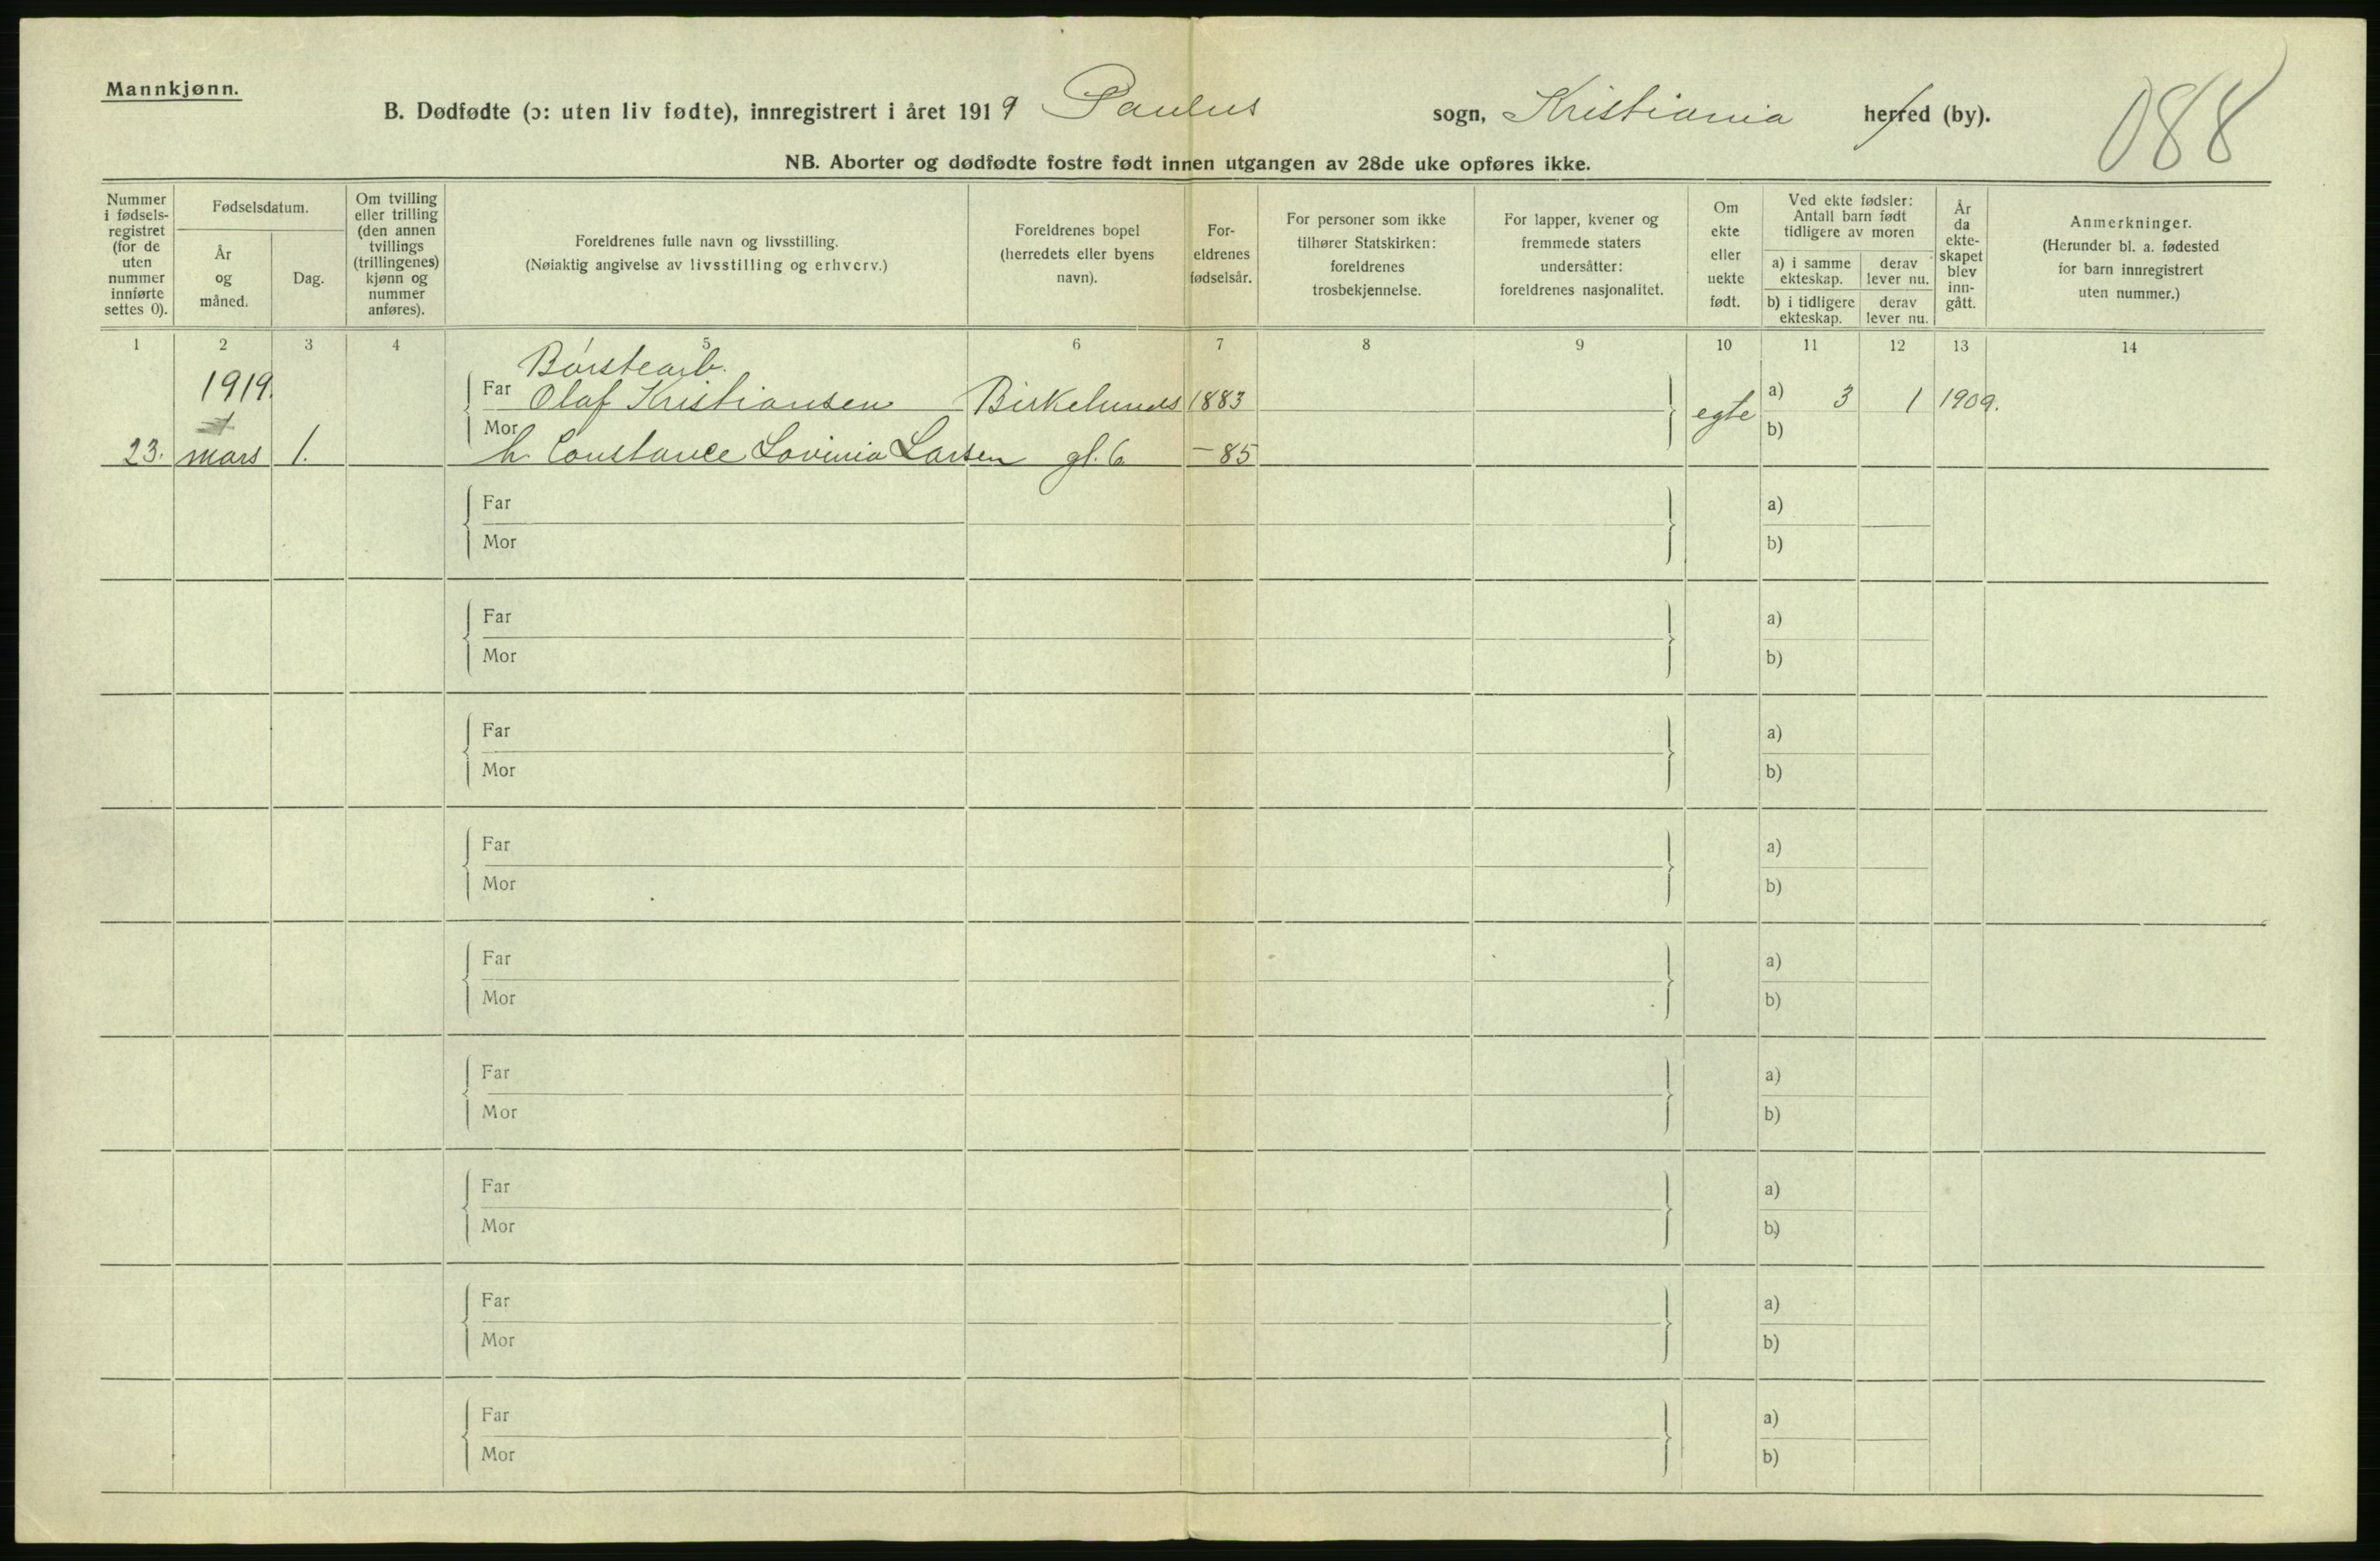 Mannkjønn.
B. Dødfødte (ɔ: uten liv fødte), innregistrert i året 1919 Paulus sogn, Kristiania herred (by).
088
NB. Aborter og dødfødte fostre født innen utgangen av 28de uke opføres ikke.
Nummer
i fødsels-
registret
(for de
uten
nummer
innførte
settes 0).
Fødselsdatum.
År
og
måned.
Dag.
Om tvilling
eller trilling
(den annen
tvillings
(trillingenes)
kjønn og
nummer
anføres).
Foreldrenes fulle navn og livsstilling.
(Nøiaktig angivelse av livsstilling og erhverv.)
Foreldrenes bopel
(herredets eller byens
navn).
For-
eldrenes
fødselsår.
For personer som ikke
tilhører Statskirken:
foreldrenes
trosbekjennelse.
For lapper, kvener og
fremmede staters
undersåtter:
foreldrenes nasjonalitet.
Om
ekte
eller
uekte
født.
Ved ekte fødsler:
Antall barn født
tidligere av moren
a) i samme
ekteskap.
derav
lever nu.
b) i tidligere
ekteskap.
derav
lever nu.
År
da
ekte-
skapet
blev
inn-
gått.
Anmerkninger.
(Herunder bl. a. fødested
for barn innregistrert
uten nummer.)
1 2 3 4 5 6 7 8 9 10 11 12 13 14
Børstearb.
1919. Far Olaf Kristiansen Birkelunds 1883 egte a) 3 1 1909.
Mor b)
23. mars 1. h. Constance Lovinia Larsen gl. 6 -85
Far a)
Mor b)
Far a)
Mor b)
Far a)
Mor b)
Far a)
Mor b)
Far a)
Mor b)
Far a)
Mor b)
Far a)
Mor b)
Far a)
Mor b)
Far a)
Mor b)